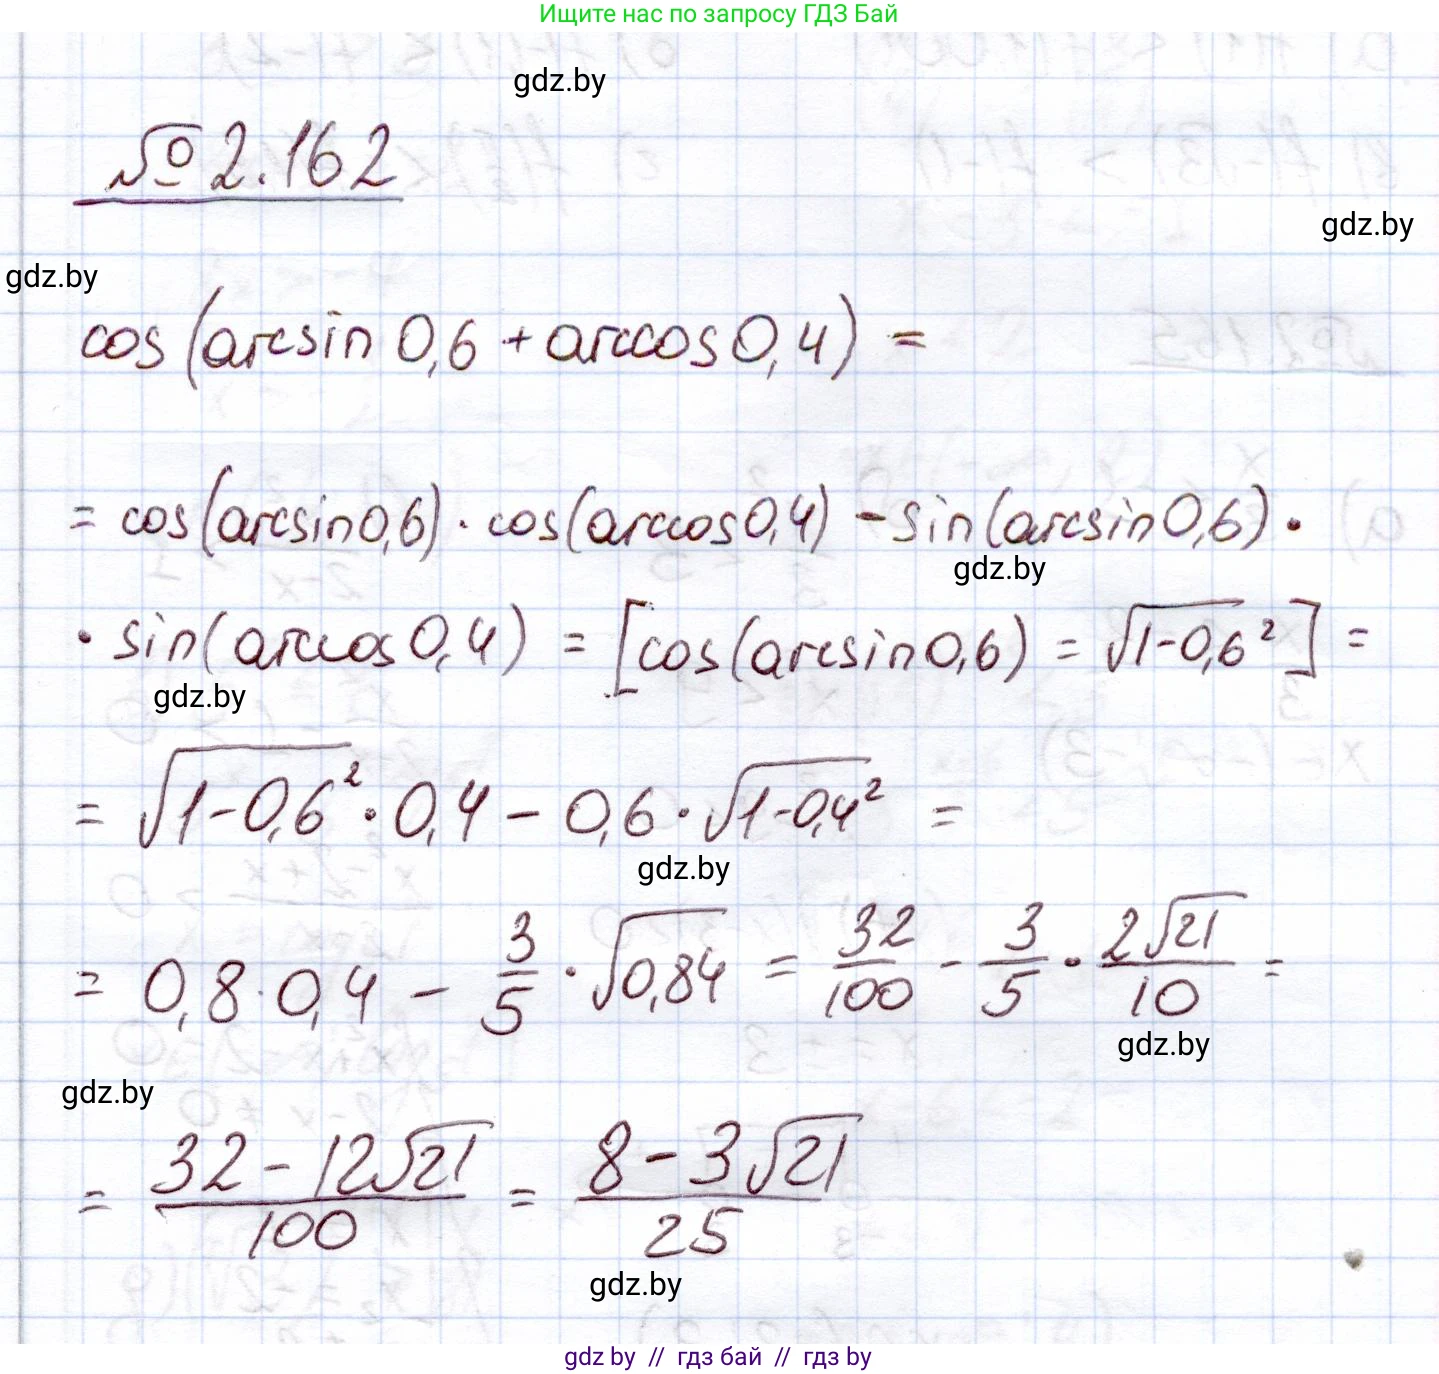 Ищите нас по запросу ГДЗ Бай
gdz.by
№ 2.162
gdz.by
gdz.by
cos(arcsin 0,6 + arccos 0,4) =
= cos(arcsin 0,6) · cos(arccos 0,4) - sin(arcsin 0,6) ·
gdz.by
· sin(arccos 0,4) = [cos(arcsin 0,6) = √1-0,6²] =
gdz.by
= √1-0,6² · 0,4 - 0,6 · √1-0,4² =
gdz.by
= 0,8 · 0,4 - 3/5 · √0,84 = 32/100 - 3/5 · 2√21/10 =
gdz.by
gdz.by
= 32 - 12√21/100 = 8 - 3√21/25
gdz.by
gdz by // гдз бай // гдз by